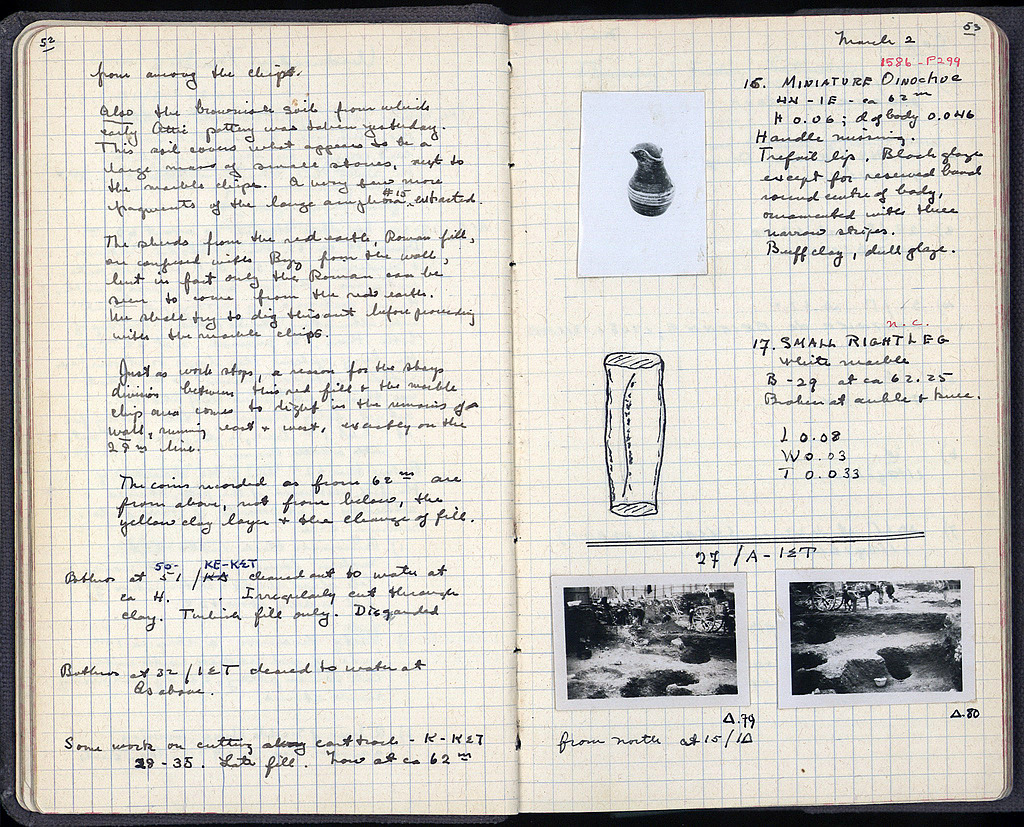 52
from among the chips.
Also the brownish soil from which
early Attic pottery was taken yesterday.
This soil covers what appears to be a
large mass of small stones, next to
the marble chips. A very few more
fragments of the large amphora #15 extracted.
The sherds from the red earth, Roman fill,
are confused with Byz from the wall,
but in fact only the Roman can be
seen to come from the red earth.
We shall try to dig this out before proceeding
with the marble chips.
Just as work stops, a reason for the sharp
division between this red fill & the marble
chip area comes to light in the remains of a
wall, running east & west, exactly on the
line.
The coins recorded as from 62 m are
from above, not from below, the
yellow clay layer & the change of fill.
50- KE-KET
Bothros at 51 / cleared out to water at
ca H. . Irregularly cut through
clay. Turkish fill only. Discarded
Bothros at 32 / IET cleared to water at
as above.
Some work on cutting along cart track - K-KET
29-35. Late fill. Now at ca 62 m
53
March 2
1586-P299
16. MINIATURE OINOCHOE
44 - IE - ca 62 m
H 0.06; d of body 0.046
Handle missing.
Trefoil lip. Black glaze
except for reserved band
round centre of body,
ornamented with three
narrow stripes.
Buff clay, dull glaze.
n.c.
17. SMALL RIGHT LEG
White marble
B-29 at ca 62.25
Broken at ankle & knee.
L 0.08
W 0.03
T 0.033
27 / A - IET
Δ.79
Δ.80
from north at 15/IΔ